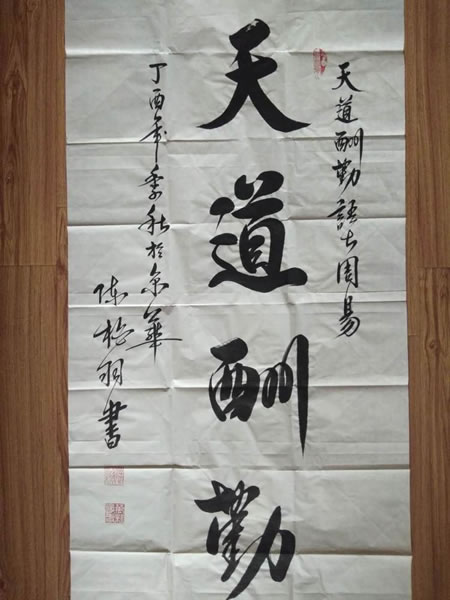 天道酬勤語出周易
天道酬勤
丁酉年季秋於京華
陈羽書